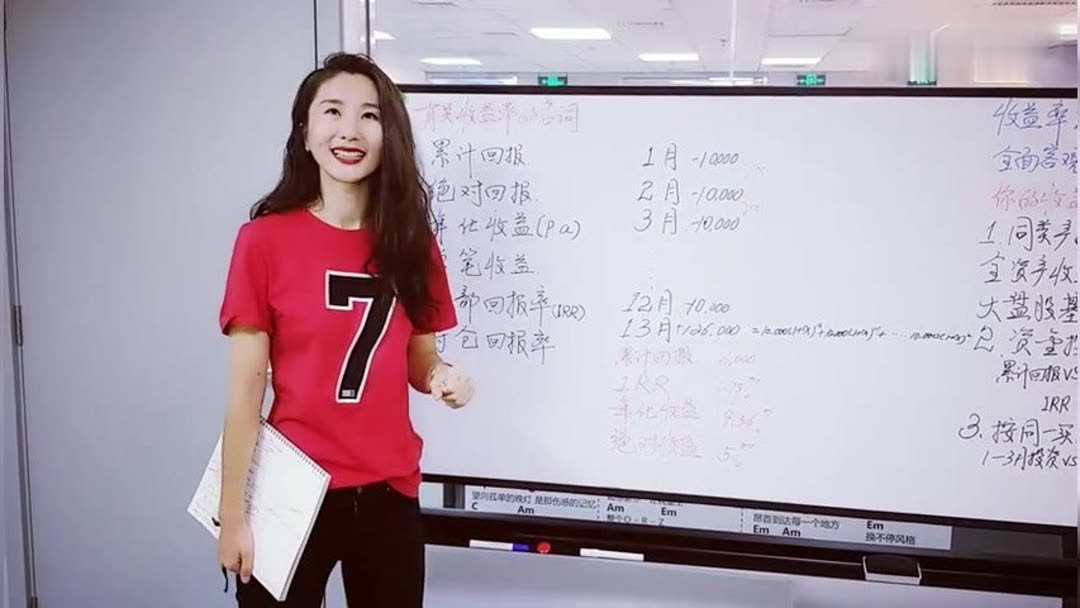 有关收益率的名词
累计回报
绝对回报
年化收益(Pa)
笔收益
部回报率(IRR)
仓回报率
1月 -10,000
2月 -10,000
3月 -10,000
12月 -10,000
13月 +126,000
累计回报 6,000
IRR
年化收益 9.36%
绝对收益 5%
收益率
全面客观
你的收益
1. 同类产
全资产收
大盘股基
2. 资金
累计回报VS
IRR
3. 按同一买
1-3月投资VS
7
望向孤单的晚灯 是那伤感的记忆
C Am
Am Em
整个O-R-Z
昂首到达每一个地方
Em Am
Em
换不停风格